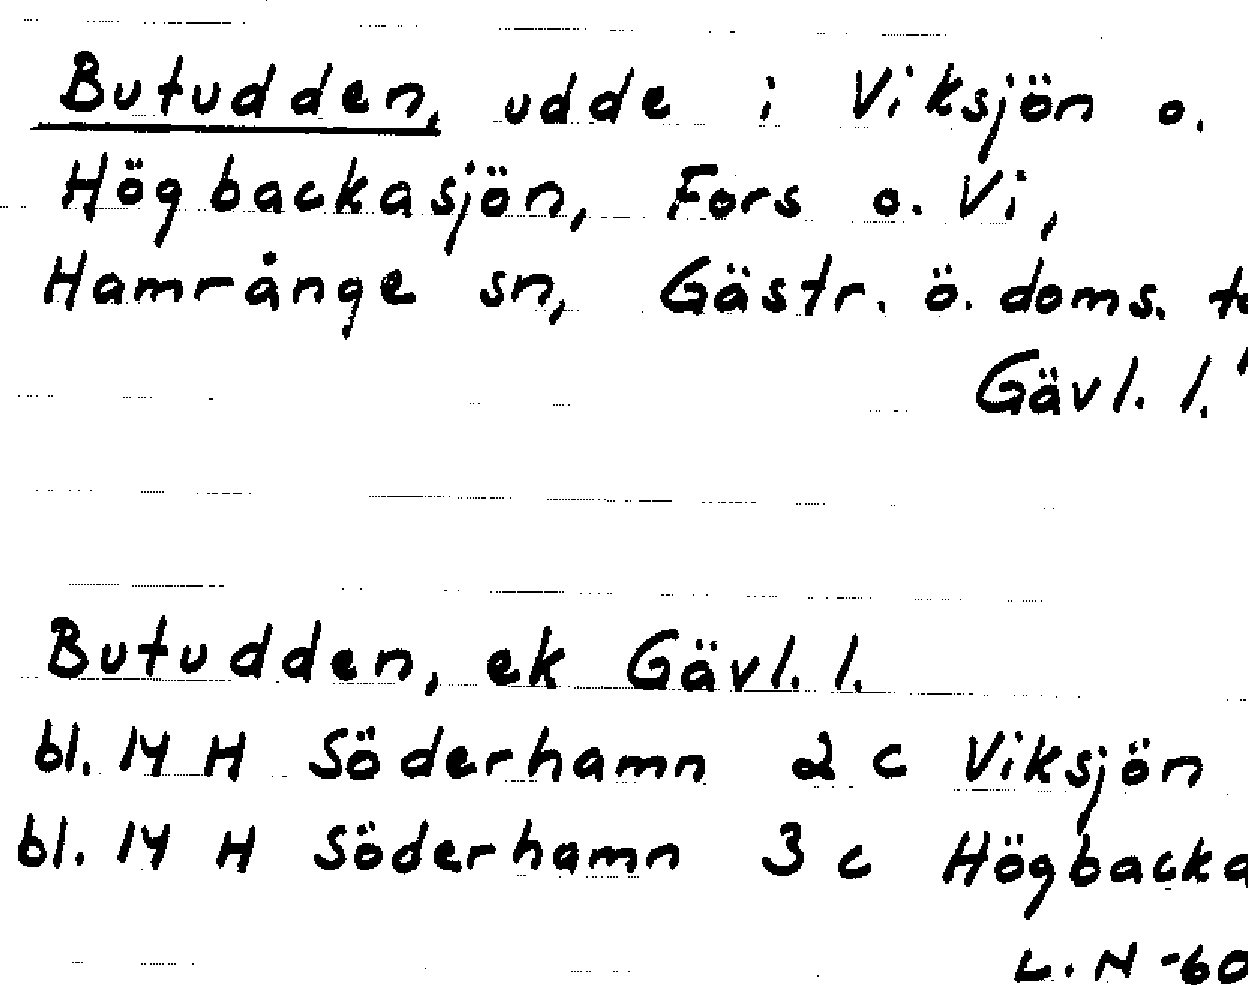 Butudden, udde i Viksjön o.
Högbackasjön, Fors o. Vi,
Hamrånge sn, Gästr. ö. doms.
Gävl. l.
Butudden, ek Gävl. l.
bl. 14 H Söderhamn 2 c Viksjön
bl. 14 H Söderhamn 3 c Högbacka
L. N -60